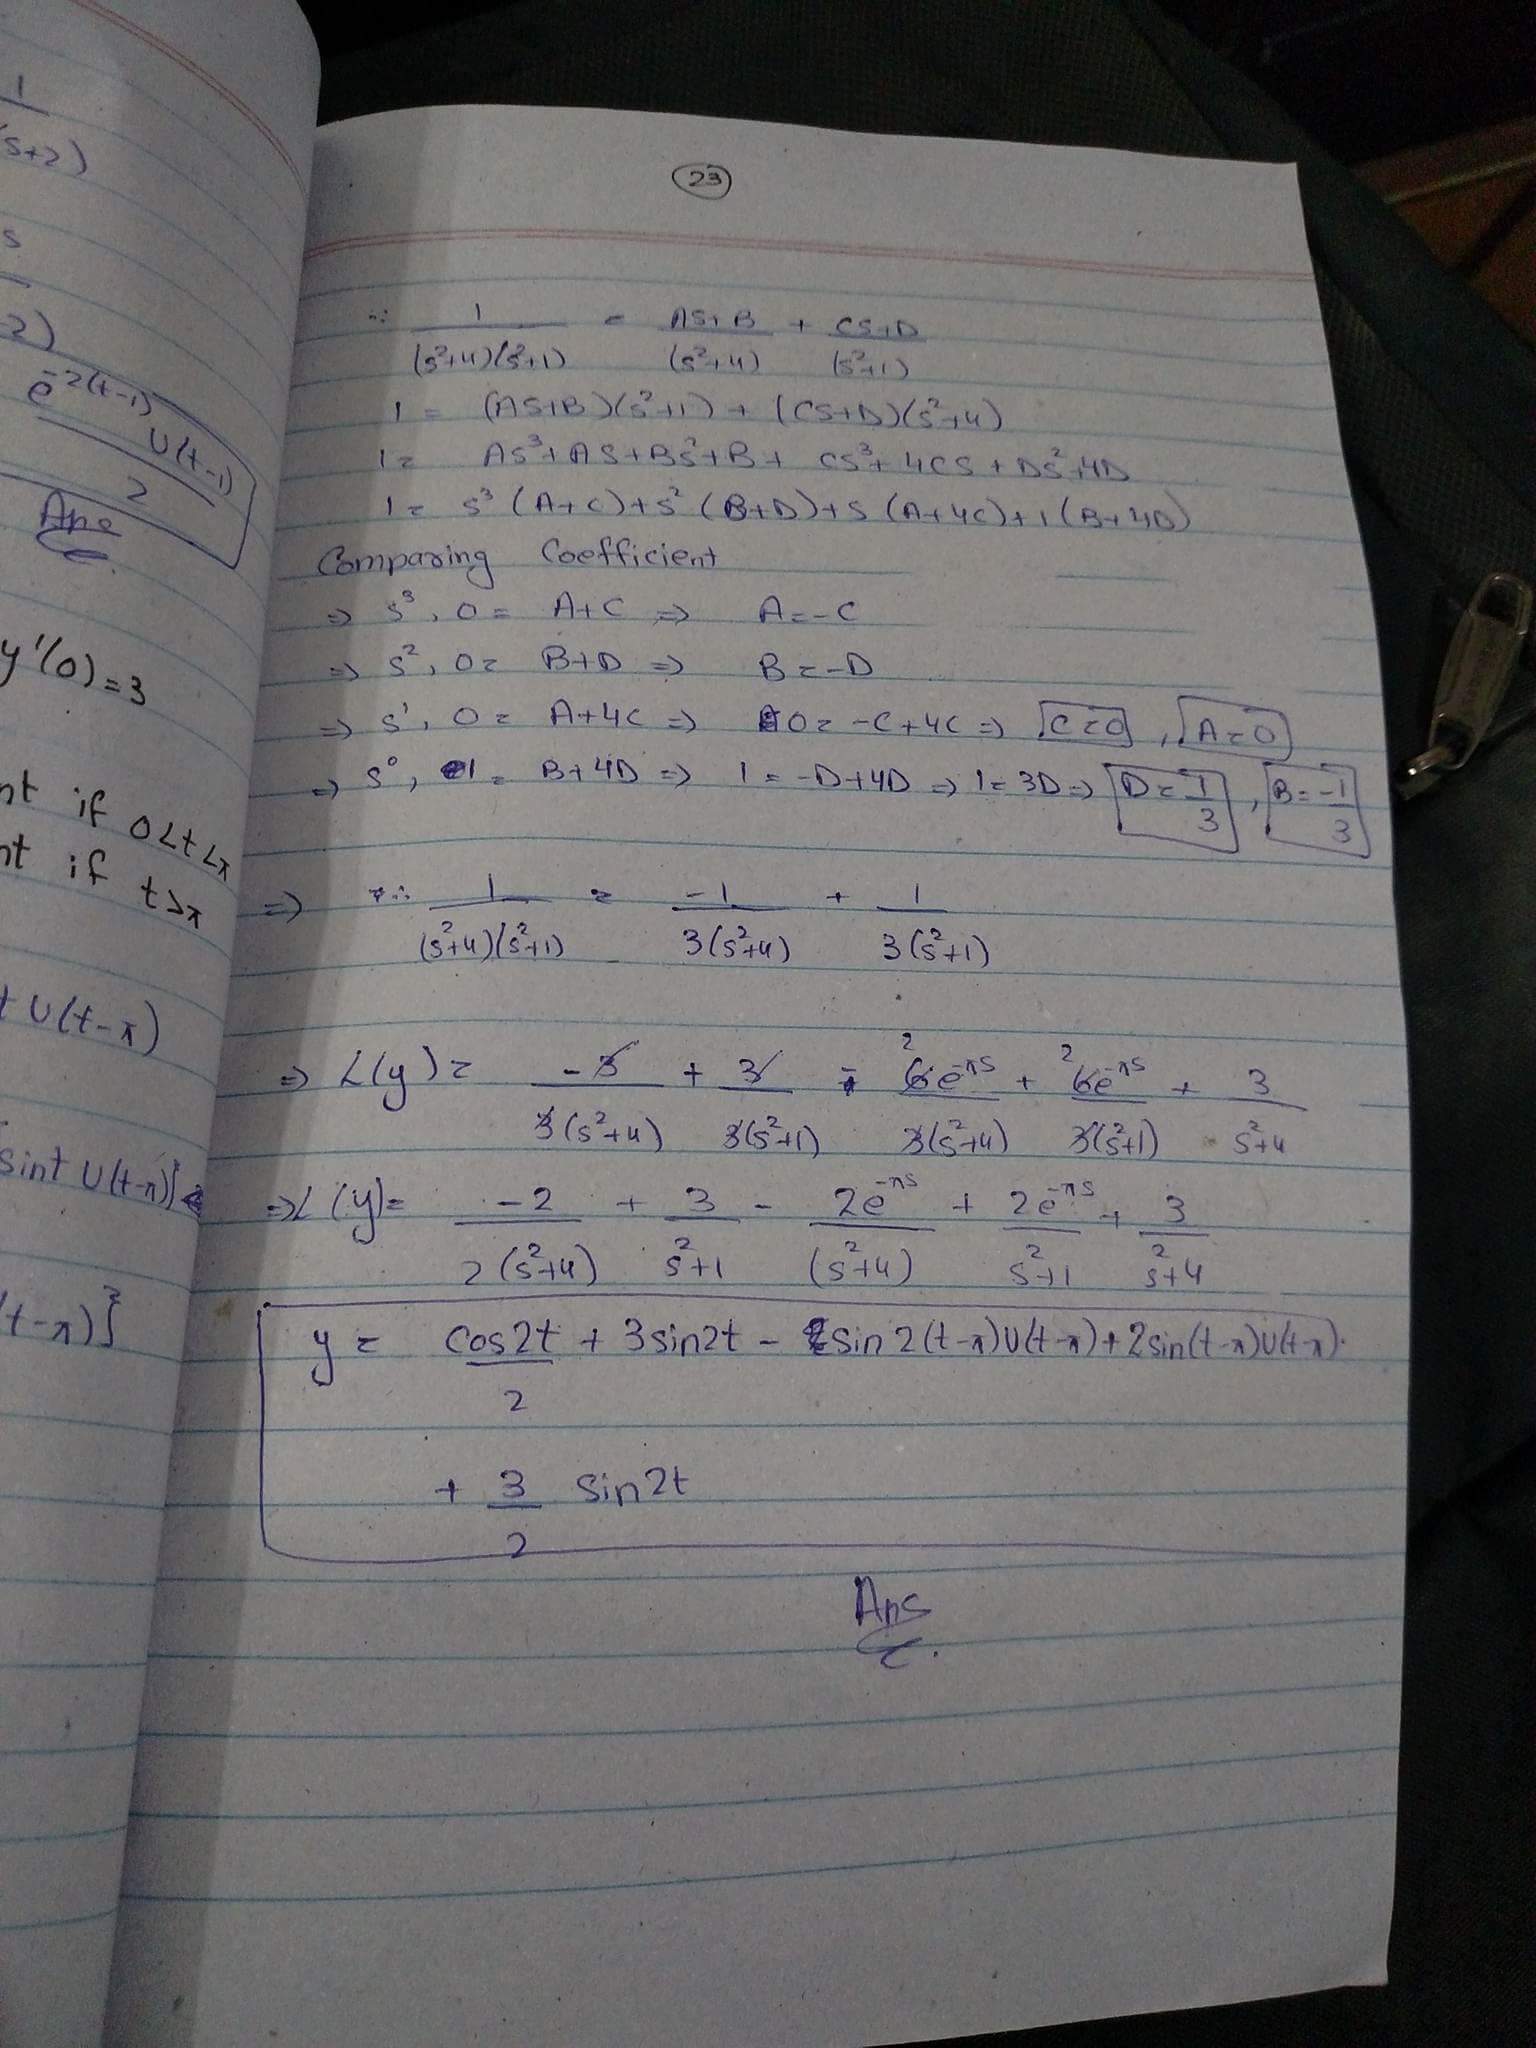 1
(s+2)
s
-2)
e^-2(t-1) U(t-1)
2
Ans
y'(0)=3
nt if 0<t<π
nt if t>π
t U(t-π)
sint U(t-π)}
(t-π)}
23
∵ 1/(s²+4)(s²+1) = As+B/(s²+4) + Cs+D/(s²+1)
1 = (As+B)(s²+1) + (Cs+D)(s²+4)
1 = As³+As+Bs²+B+ Cs³+4Cs+Ds²+4D
1 = s³(A+C)+s²(B+D)+s(A+4C)+1(B+4D)
Comparing Coefficient
⇒ s³, 0 = A+C ⇒ A=-C
⇒ s², 0 = B+D ⇒ B=-D
⇒ s¹, 0 = A+4C ⇒ 0 = -C+4C ⇒ C=0, A=0
⇒ s⁰, 1 = B+4D ⇒ 1 = -D+4D ⇒ 1=3D ⇒ D=1/3, B=-1/3
⇒ ∵ 1/(s²+4)(s²+1) = -1/3(s²+4) + 1/3(s²+1)
⇒ L(y) = -3/3(s²+4) + 3/3(s²+1) - 2 6e^-πs/3(s²+4) + 2 6e^-πs/3(s²+1) + 3/s²+4
⇒ L(y)= -2/2(s²+4) + 3/s²+1 - 2e^-πs/(s²+4) + 2e^-πs/s²+1 + 3/s²+4
y = cos2t/2 + 3sin2t - sin2(t-π)U(t-π)+2sin(t-π)U(t-π)
+ 3/2 sin2t
Ans